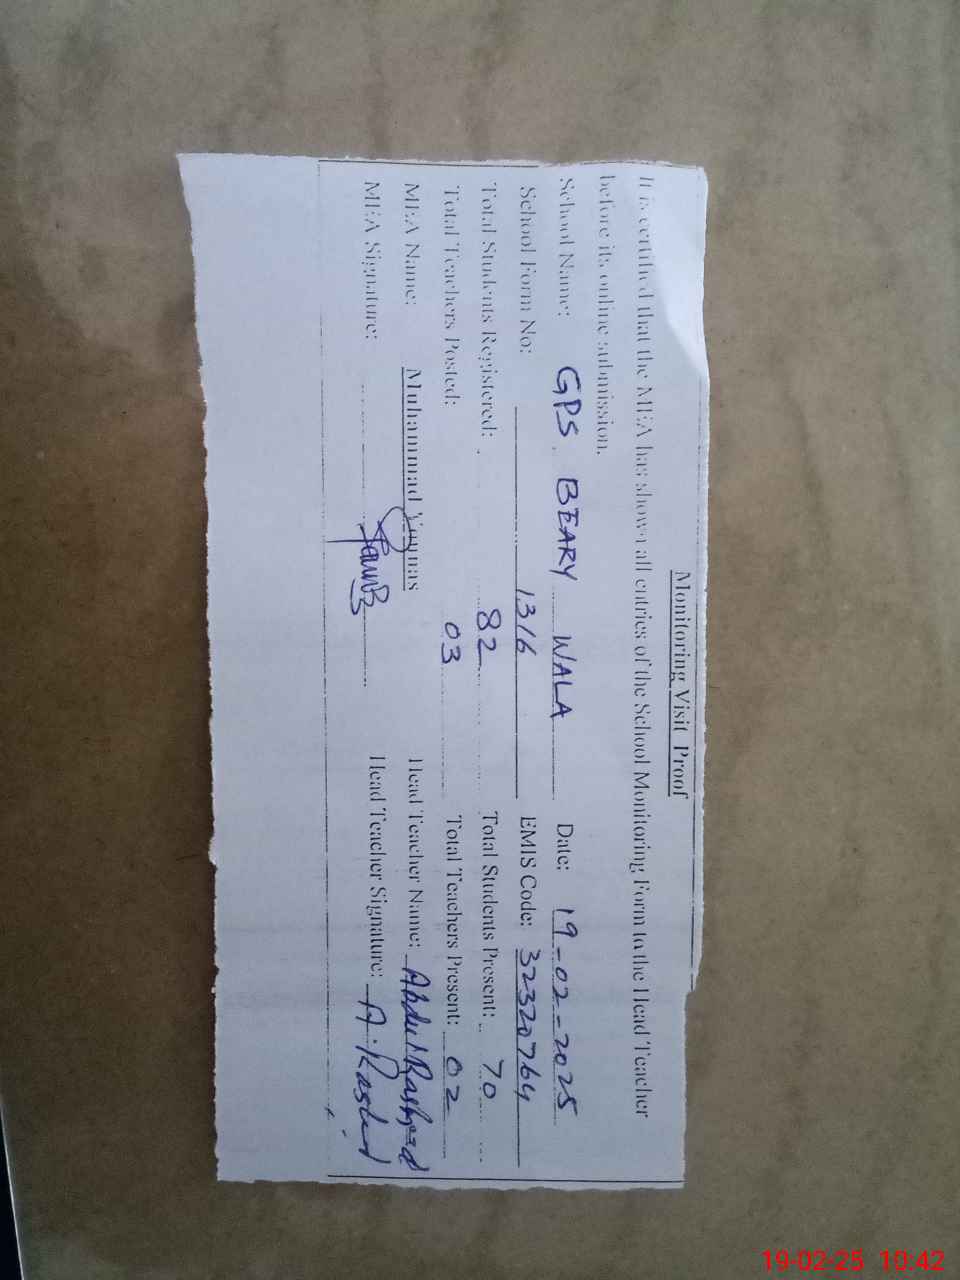 Monitoring Visit Proof
It is certified that the MEA has shown all entries of the School Monitoring Form to the Head Teacher
before its online submission.
School Name: GPS BEARY WALA Date: 19-02-2025
School Form No: 1316 EMIS Code: 32320764
Total Students Registered: 82 Total Students Present: 70
Total Teachers Posted: 03 Total Teachers Present: 02
MEA Name: Muhammad Younas Head Teacher Name: Abdul Rasheed
MEA Signature: Head Teacher Signature: A. Rasheed
19-02-25 10:42